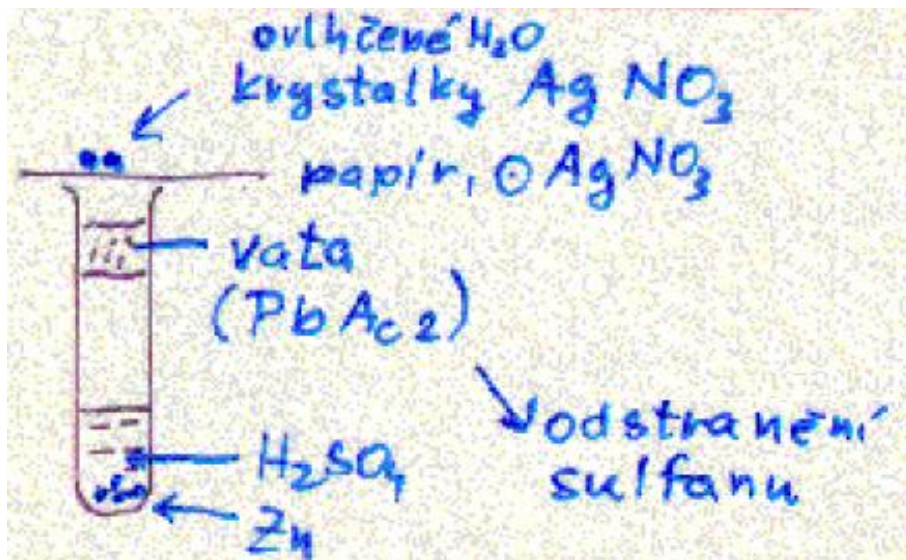 ovlhčené H₂O
krystalky AgNO₃
papír, ⊙ AgNO₃
vata
(PbAc2)
odstranění
sulfanu
H₂SO₄
Zn